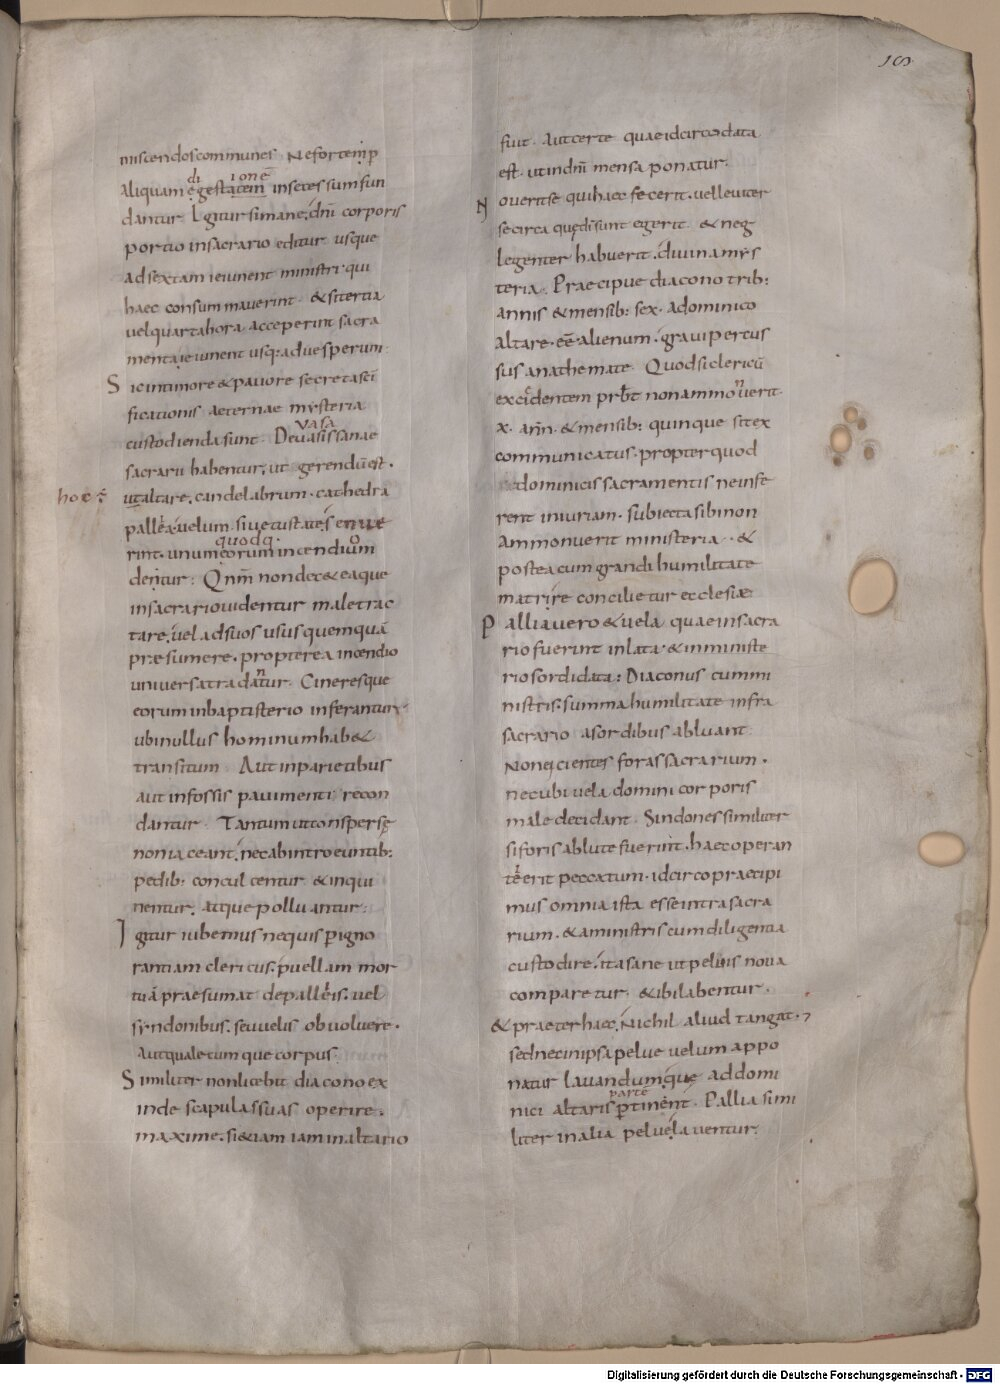 miscendos communes Ne forte inp
di ione
aliquam egestacem insetes sumfun
dantur Igitur si mane, dni corporis
portio in sacrario editur usque
ad sextam ieiunent ministri qui
haec consummaverint · & si tertia
vel quarta hora acceperint sacra
menta, ieiunent usq: ad vesperum
Sic in timore & pavore secreta sci
ficationis aeternae mysteria
vasa
custodienda sunt. De vasis sanae
sacrarii habentur, ut gerendū est.
hoc ÷ ut altare, candelabrum · cathedra
palle a velum. sive vustate senve
quodq·
rint · unum eorum incendium
dentur: Qnm non dec& ea que
in sacrario videntur male trac
tare, vel ad suos usus quemquā
praesumere · propterea incendio
universa tradantur. Cineresque
eorum in baptisterio inferantur
ubi nullus hominum hab&
transitum Aut in parietibus
aut in fossis pavimenti recon
dantur. Tantum ut conspersę
non iaceant, nec ab introeuntib:
pedib: conculcentur & inqui
nentur, atque polluantur.
Igitur iubemus ne quis p igno
rantiam clericus, puellam mor
tuā praesumat de palleis, vel
syndonibus, seu velis obvolvere.
Aut qualetumque corpus
Similiter non licebit diacono ex
inde scapulas suas operire.
maxime, si &iam iam in altario
103
fuit. Aut certe quae idcirco data
est. ut in dnī mensa ponatur.
Noverit se qui haec fecerit. vel leviter
se circa quę di sunt egerit. & neg
legenter habuerit. divina mys
teria. Praecipue diacono trib:
annis & mensib: sex. a dominico
altare. eē alienum. gravi percus
sus anathemate. Quod si clericū
n
excidentem prbt non ammoverit
x. ann. & mensib: quinque sit ex
communicatus. propter quod
dominicis sacramentis ne infe
rent iniuriam. subiecta sibi non
ammonuerit ministeria. &
postea cum grandi humilitate
matri re concilietur ecclesiæ
Pallia vero & vela quae in sacra
rio fuerint inlata & in ministe
rio sordidata: Diaconus cum mi
nistris. summa humilitate infra
sacrario a sordibus abluant
Non eicientes foras sacrarium.
ne cubi vela domini corporis
male decidant. Sindones similiter
si foris ablute fuerint. haec operan
te erit peccatum. idcirco praecipi
mus omnia ista esse intra sacra
rium. & a ministris cum diligentia
custodire, ita sane ut pelvis nova
comparetur. & ibi labentur.
& praeter haec, nichil aliud tangat.
sed nec in ipsa pelve velum appo
natur lavandumque ad domi
parte
nici altaris ptinent. Pallia simi
liter in alia pelve laventur.
Digitalisierung gefördert durch die Deutsche Forschungsgemeinschaft - DFG